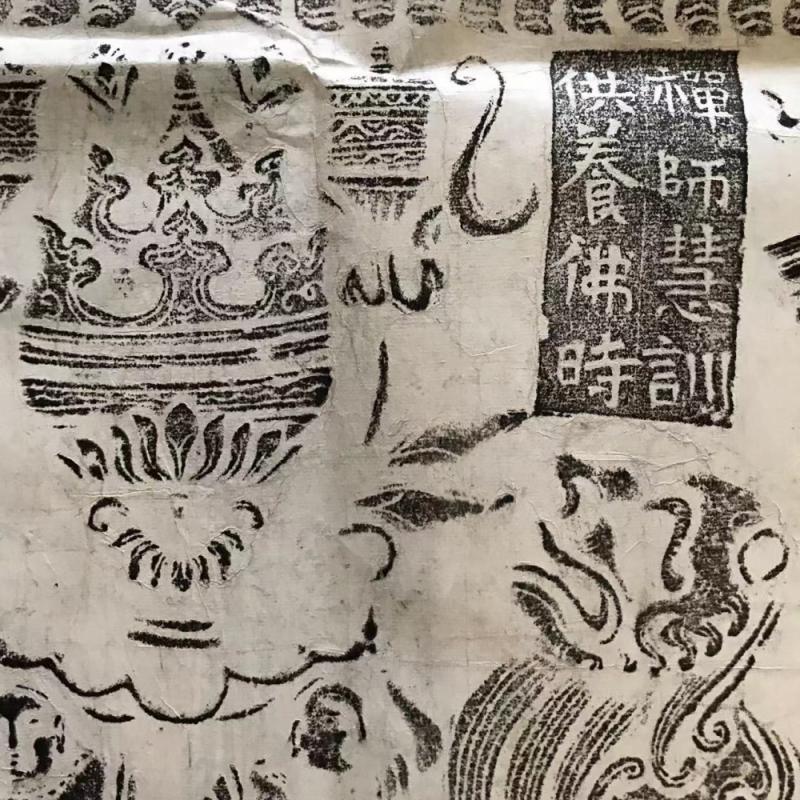 禪師慧訓
供養佛時